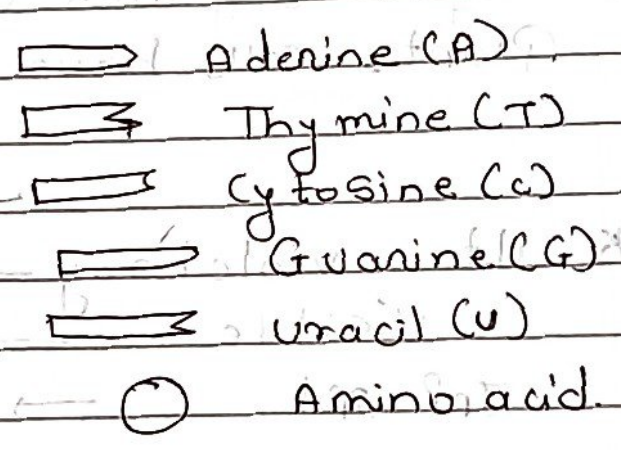 Adenine (A)
Thymine (T)
Cytosine (C)
Guanine (G)
Uracil (U)
Amino acid.